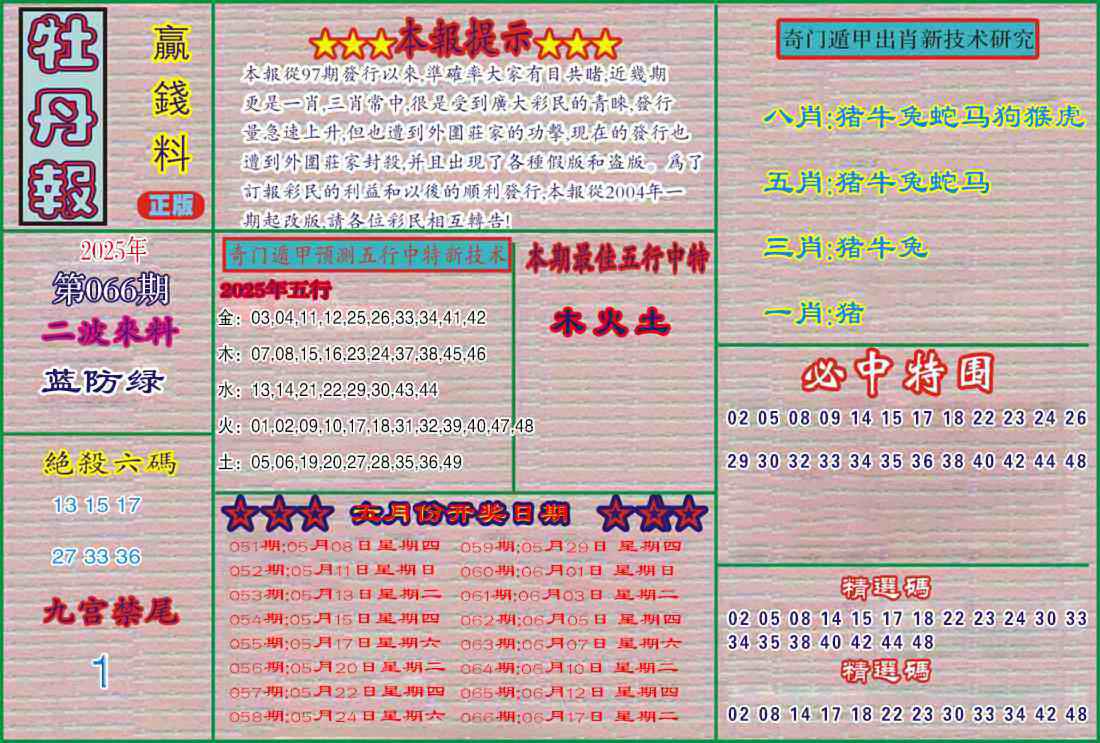 牡丹報
贏錢料
正版
★★★本報提示★★★
本報從97期發行以來,準確率大家有目共睹,近幾期
更是一肖,三肖常中,很是受到廣大彩民的青睞,發行
量急速上升,但也遭到外圍莊家的功擊,現在的發行也
遭到外圍莊家封殺,并且出現了各種假版和盗版。爲了
訂報彩民的利益和以後的順利發行,本報從2004年一
期起改版,請各位彩民相互轉告!
奇门遁甲出肖新技术研究
八肖:猪牛兔蛇马狗猴虎
五肖:猪牛兔蛇马
三肖:猪牛兔
一肖:猪
2025年
第066期
二波來料
蓝防绿
奇门遁甲预测五行中特新技术
2025年五行
金：03,04,11,12,25,26,33,34,41,42
木：07,08,15,16,23,24,37,38,45,46
水：13,14,21,22,29,30,43,44
火：01,02,09,10,17,18,31,32,39,40,47,48
土：05,06,19,20,27,28,35,36,49
本期最佳五行中特
木火土
必中特围
02 05 08 09 14 15 17 18 22 23 24 26
29 30 32 33 34 35 36 38 40 42 44 48
絕殺六碼
13 15 17
27 33 36
九宫禁尾
1
☆☆☆ 六月份开奖日期 ☆☆☆
051期:05月08日星期四 059期:05月29日 星期四
052期:05月11日星期日 060期:06月01日 星期日
053期:05月13日星期二 061期:06月03日 星期二
054期:05月15日星期四 062期:06月05日 星期四
055期:05月17日星期六 063期:06月07日 星期六
056期:05月20日星期二 064期:06月10日 星期二
057期:05月22日星期四 065期:06月12日 星期四
058期:05月24日星期六 066期:06月17日 星期二
精選碼
02 05 08 14 15 17 18 22 23 24 30 33
34 35 38 40 42 44 48
精選碼
02 08 14 17 18 22 23 30 33 34 42 48